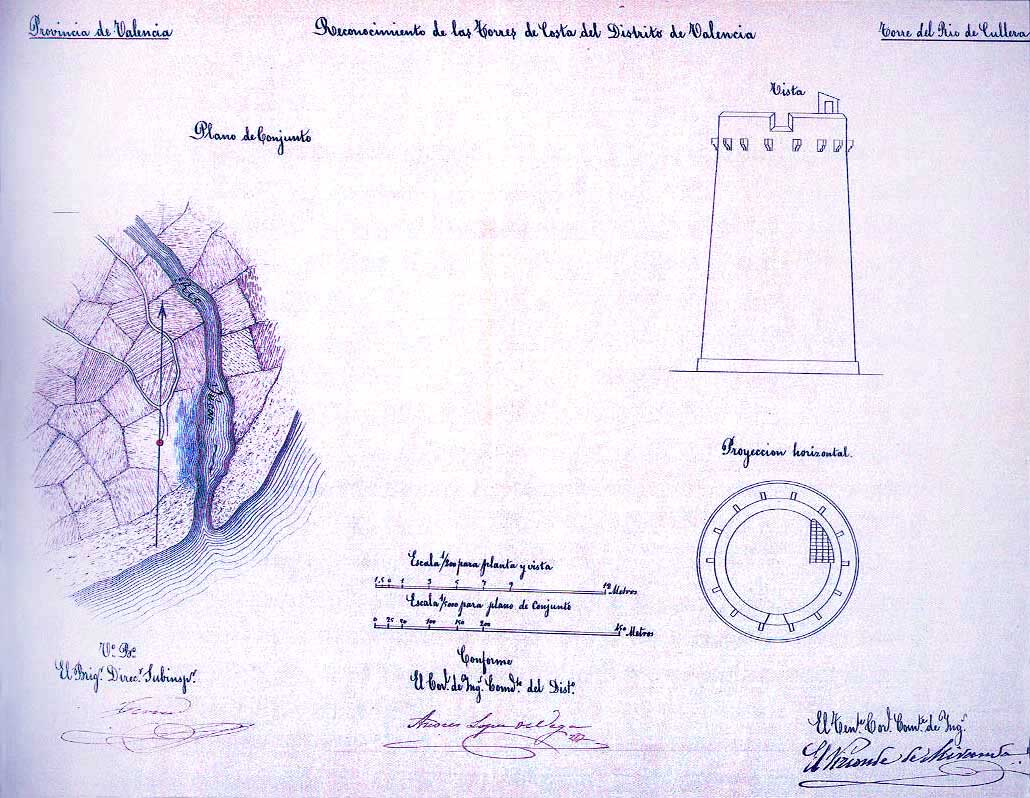 Provincia de Valencia
Reconocimiento de las Torres de Costa del Distrito de Valencia
Torre del Rio de Cullera
Plano de Conjunto
Vista
Rio
Jucar
Proyeccion horizontal.
Escala 1/200 para planta y vista
1,5 0 1 3 5 7 9 19 Metros
Escala 1/5000 para plano de Conjunto
0 25 50 100 150 200 450 Metros
Vº Bº
El Brigr. Direcr. Subinspr.
Conforme
El Corl. de Ings. Comdte. del Disto.
Andres Lopez de Vega
El Tente. Corl. Comte. de Ings.
El Vizconde de Miranda